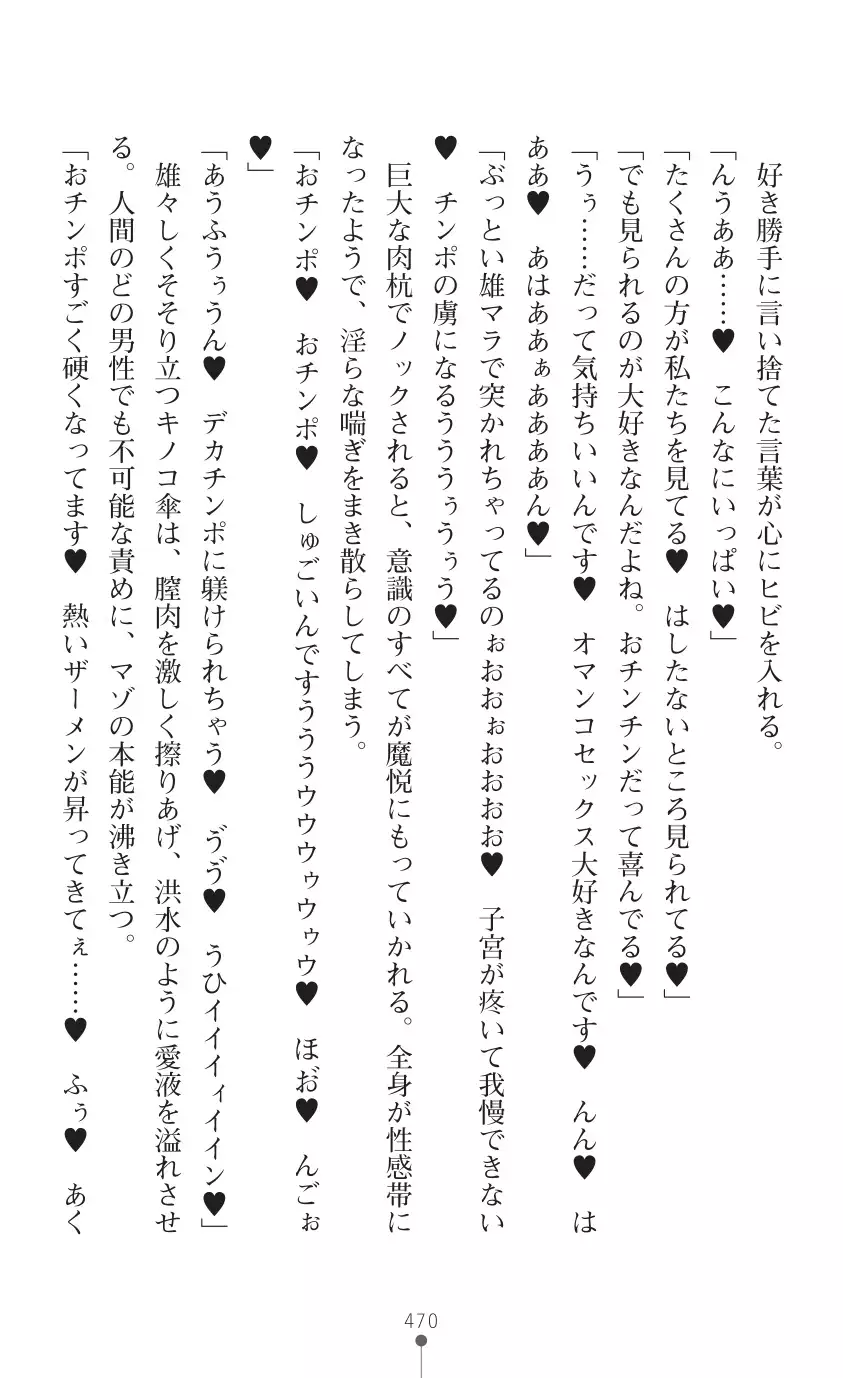 好き勝手に言い捨てた言葉が心にヒビを入れる。
「んうああ……♥　こんなにいっぱい♥」
「たくさんの方が私たちを見てる♥　はしたないところ見られてる♥」
「でも見られるのが大好きなんだよね。おチンチンだって喜んでる♥」
「うぅ……だって気持ちいいんです♥　オマンコセックス大好きなんです♥　んん♥　は
ああ♥　あはああぁああああん♥」
「ぶっとい雄マラで突かれちゃってるのぉおおぉおおおお♥　子宮が疼いて我慢できない
♥　チンポの虜になるうううぅうぅう♥」
巨大な肉杭でノックされると、意識のすべてが魔悦にもっていかれる。全身が性感帯に
なったようで、淫らな喘ぎをまき散らしてしまう。
「おチンポ♥　おチンポ♥　しゅごいんですうううウウウゥウゥウ♥　ほお゙♥　んごぉ
♥」
「あうふうぅうん♥　デカチンポに躾けられちゃう♥　ゔゔ♥　うひイイイィイイン♥」
雄々しくそそり立つキノコ傘は、膣肉を激しく擦りあげ、洪水のように愛液を溢れさせ
る。人間のどの男性でも不可能な責めに、マゾの本能が沸き立つ。
「おチンポすごく硬くなってます♥　熱いザーメンが昇ってきてぇ……♥　ふぅ♥　あく
470